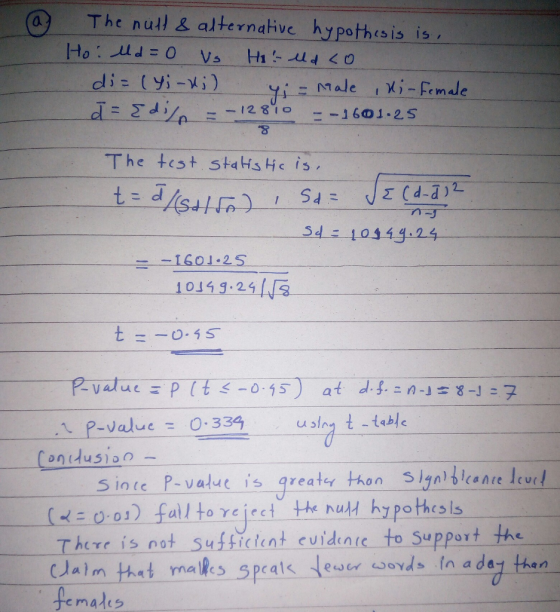 (a) The null & alternative hypothesis is,
H0: μd = 0 Vs H1:- μd < 0
di = (yi - xi) yi = Male, xi - Female
d̄ = Σdi/n = -12810/8 = -1601.25
The test statistic is,
t = d̄/(Sd/√n) , Sd = √(Σ(d-d̄)²/n-1)
Sd = 10149.24
= -1601.25 / 10149.24/√8
t = -0.45
P-value = P(t ≤ -0.45) at d.f. = n-1 = 8-1 = 7
∴ p-value = 0.334 using t-table
Conclusion -
Since P-value is greater than significance level
(α = 0.01) fail to reject the null hypothesis
There is not sufficient evidence to support the
claim that males speak fewer words in a day than
females